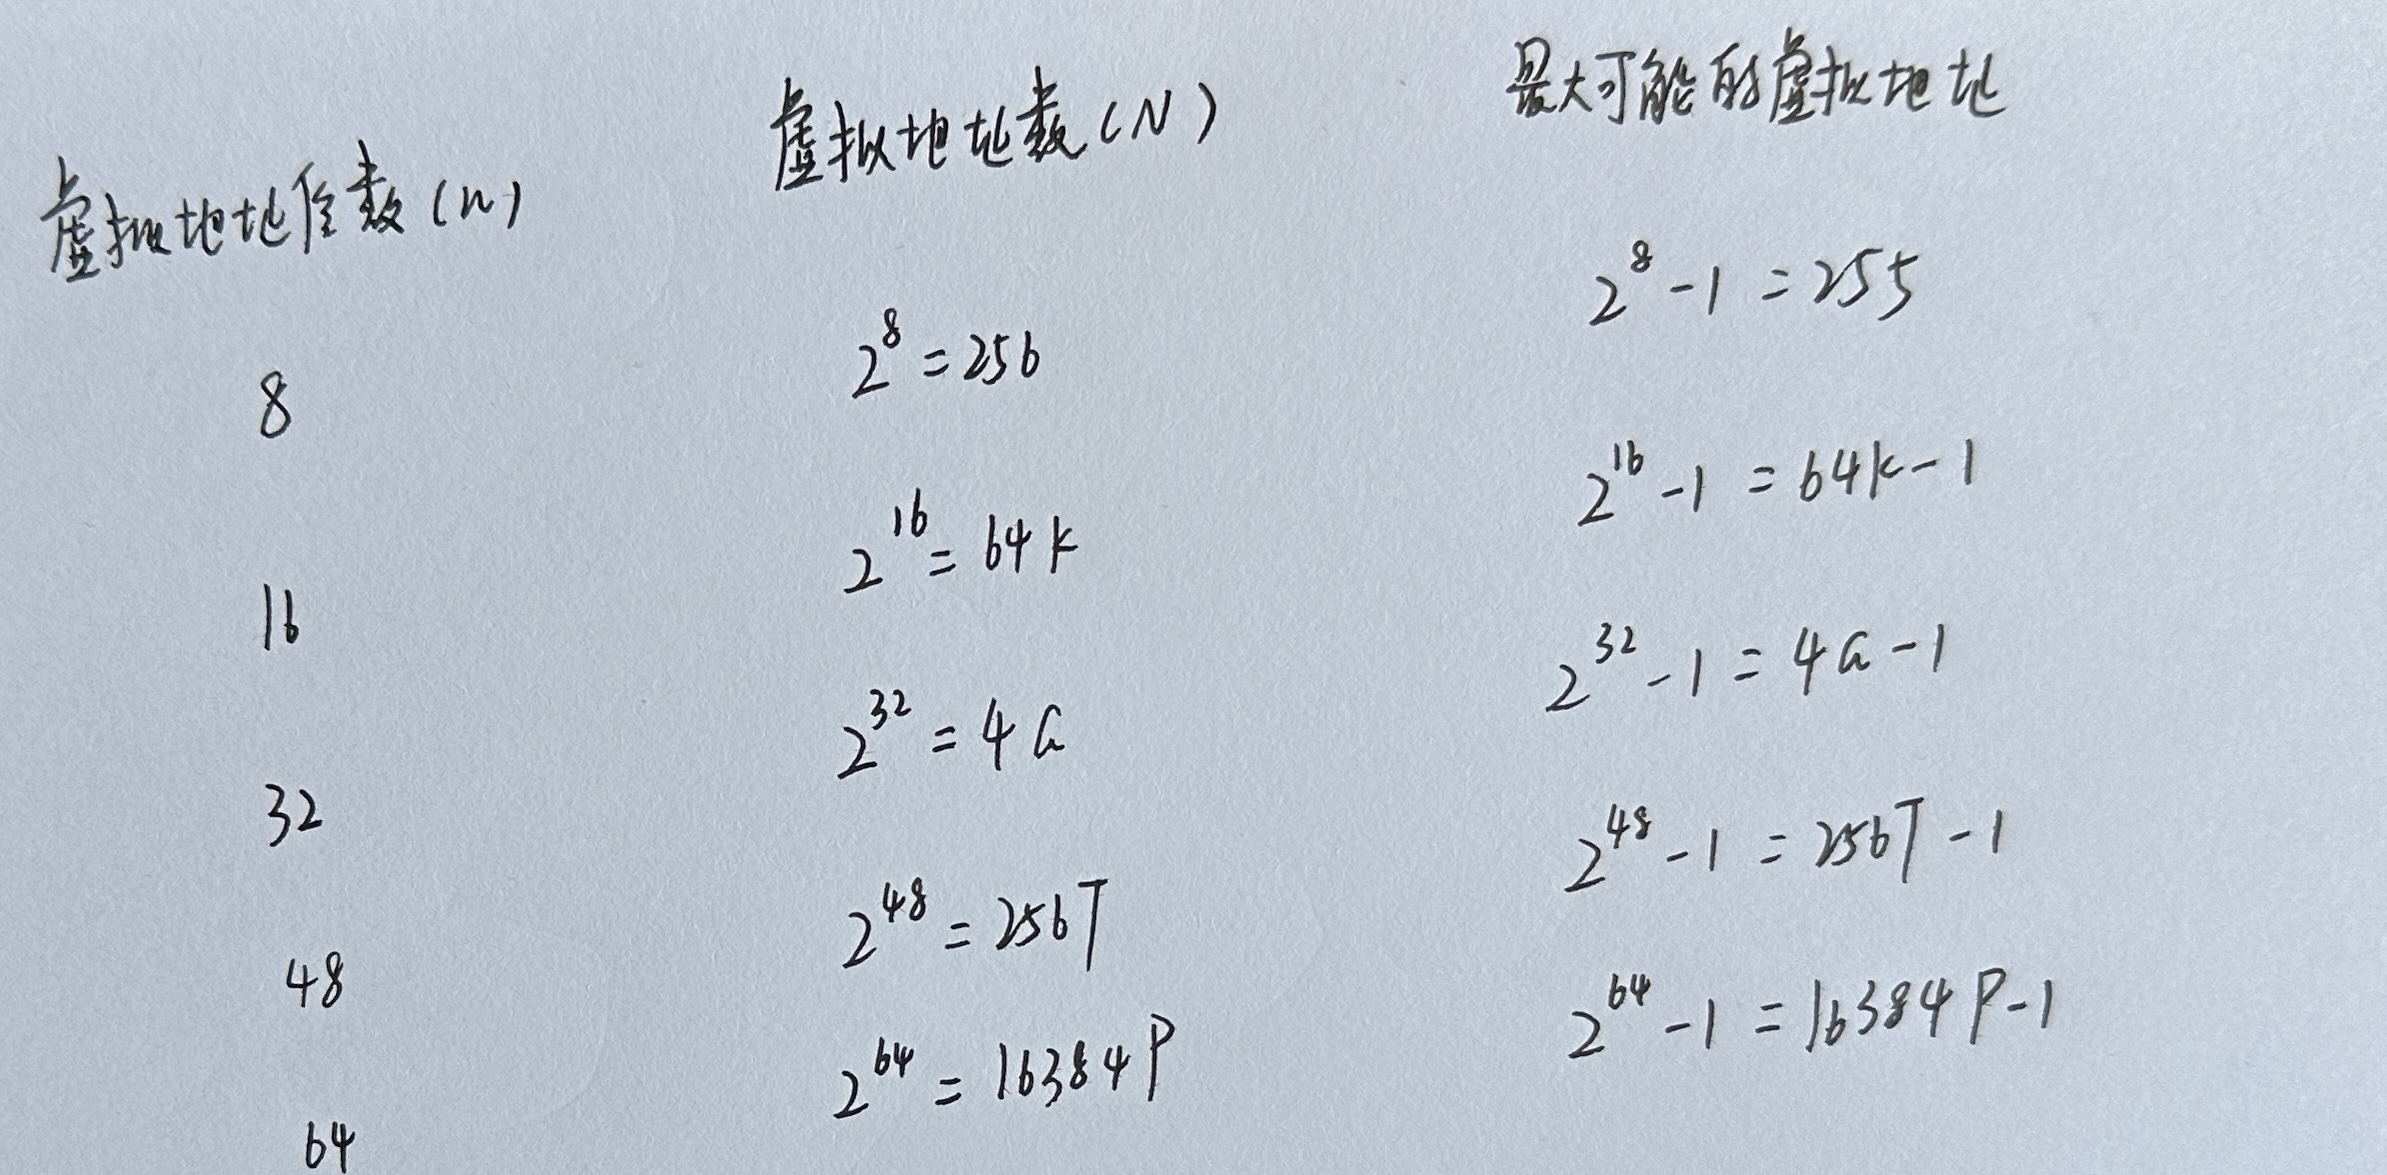 虚拟地址位数(n) 虚拟地址数(N) 最大可能的虚拟地址
8 2^8 = 256 2^8 - 1 = 255
16 2^16 = 64K 2^16 - 1 = 64K - 1
32 2^32 = 4G 2^32 - 1 = 4G - 1
48 2^48 = 256T 2^48 - 1 = 256T - 1
64 2^64 = 16384P 2^64 - 1 = 16384P - 1